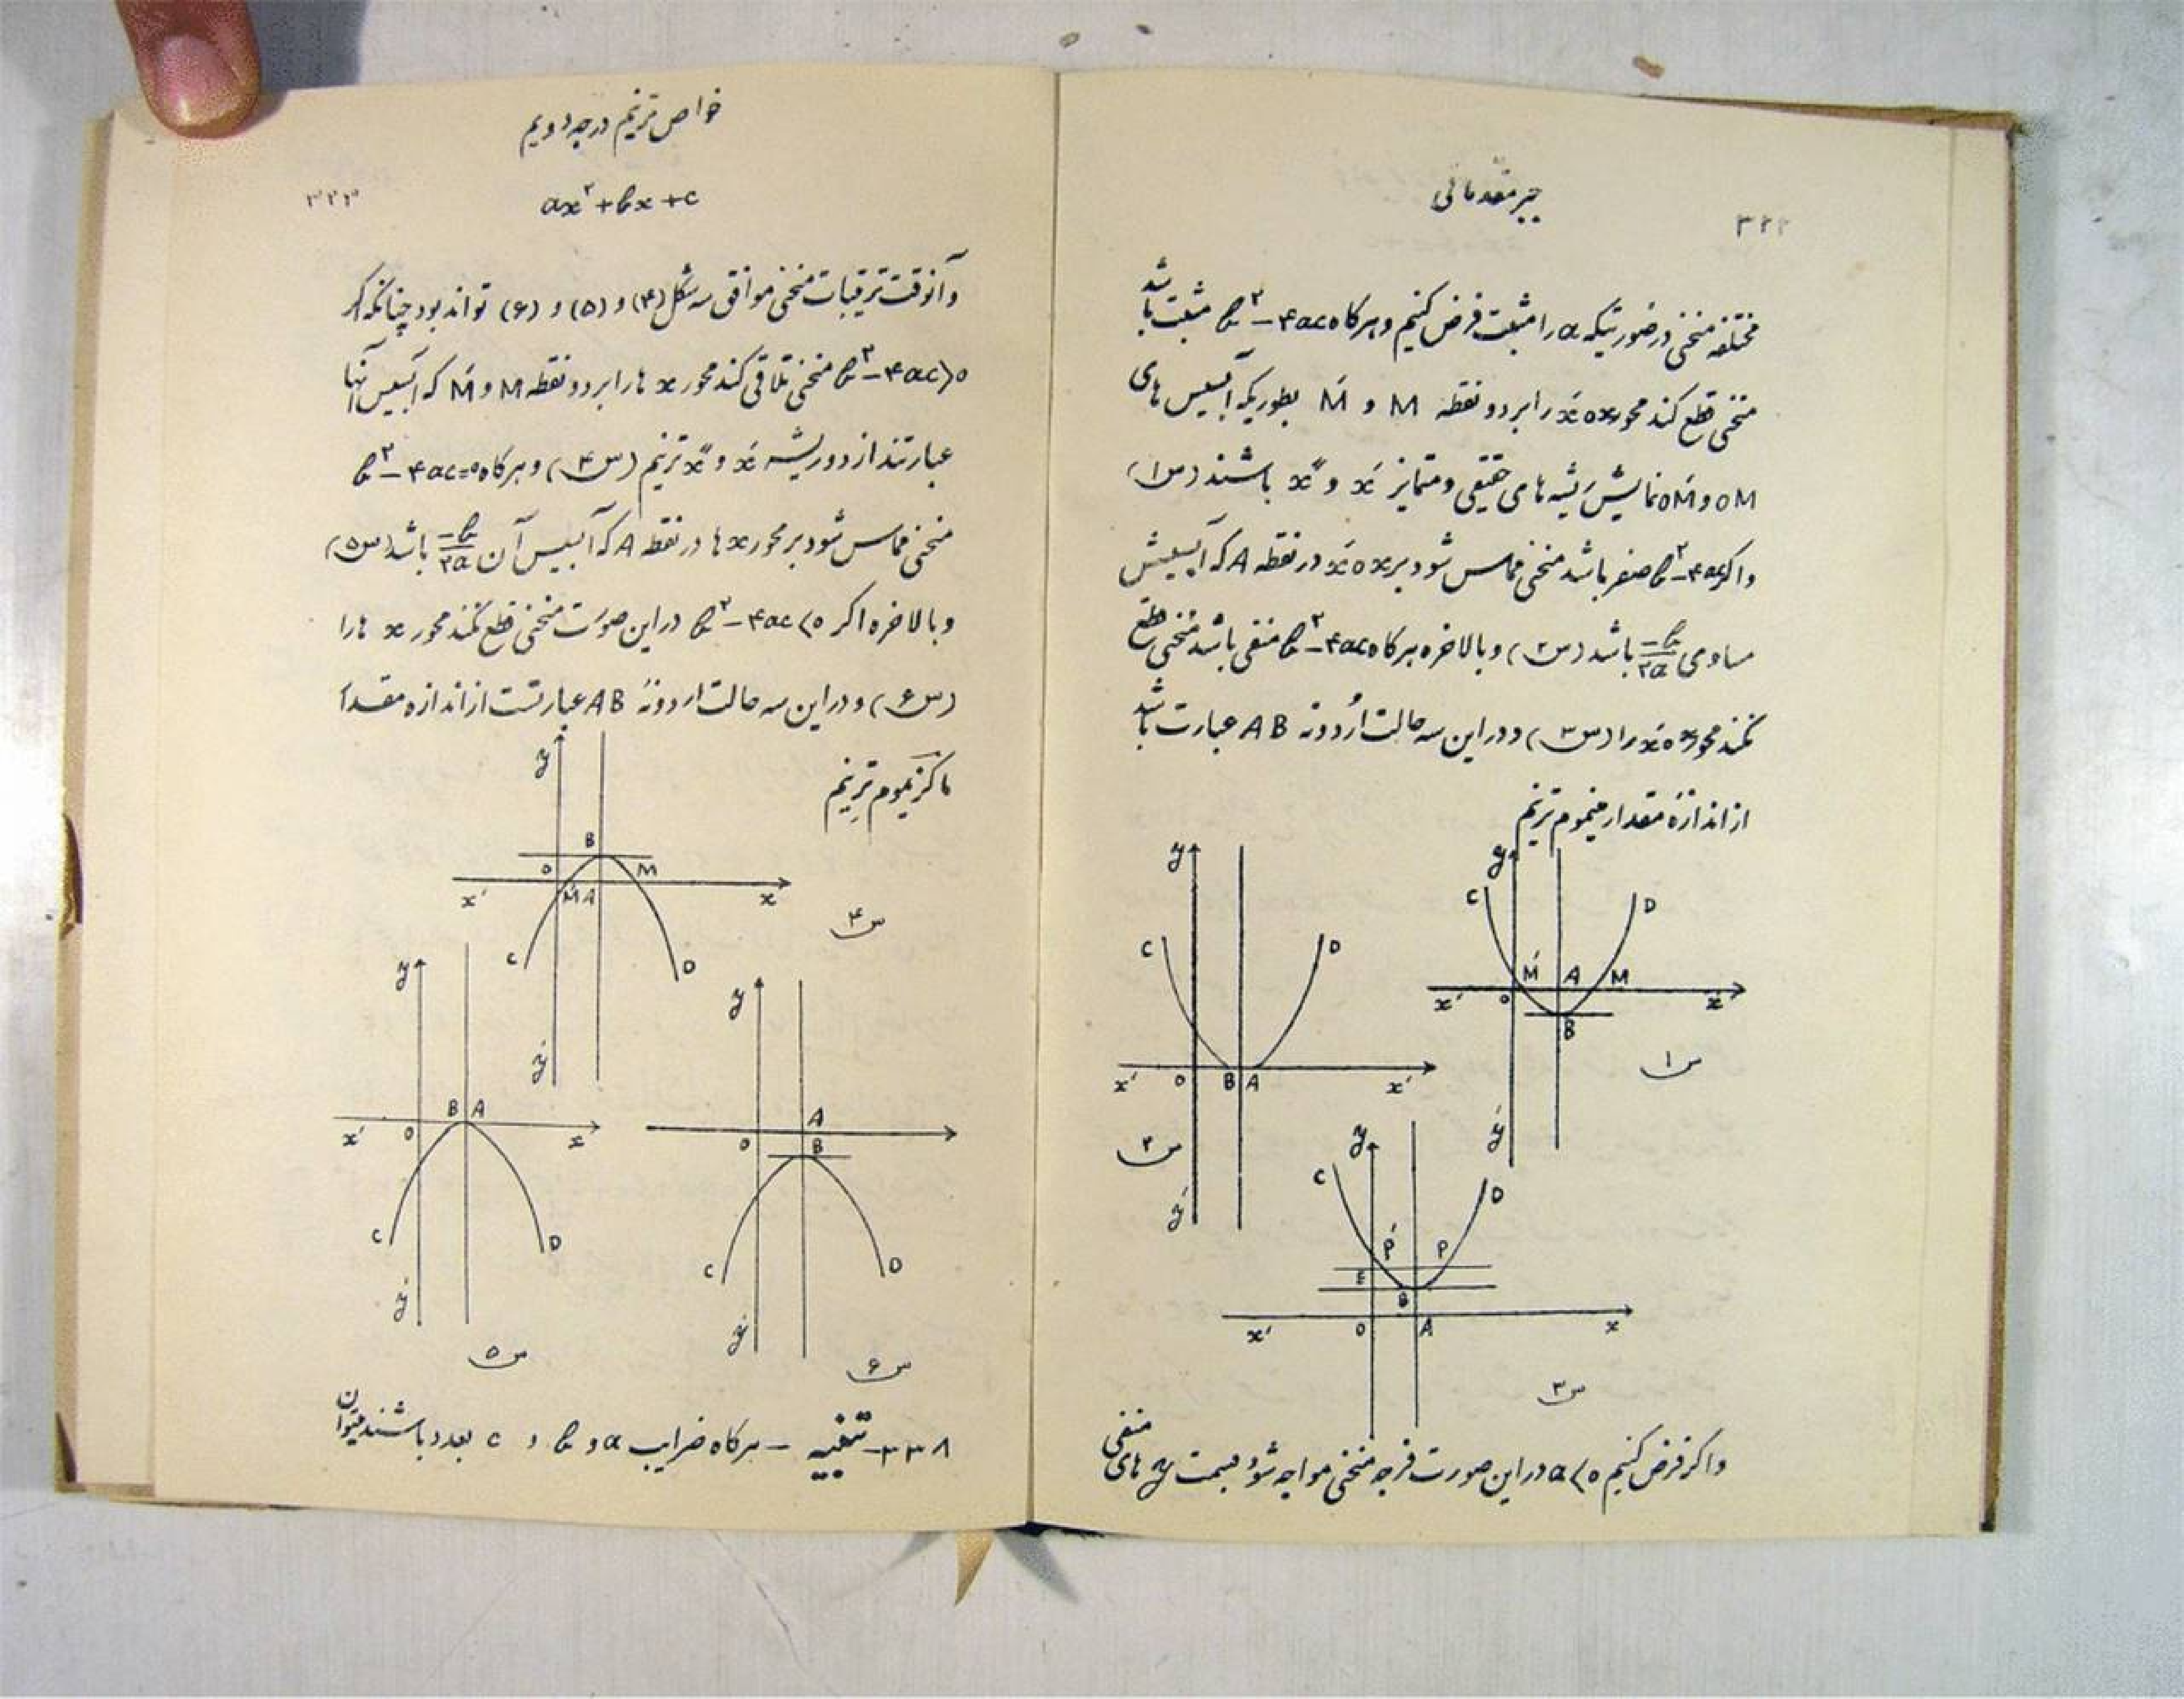 جبر مقدماتی
۳۲۲
مختلفه منحنی در صورتیکه a را مثبت فرض کنیم و هرگاه b²-۴ac مثبت باشد
منحنی قطع کند محور x́ox را بر دو نقطه M و Ḿ بطوریکه آبسیس های
OM و OḾ نمایش ریشه های حقیقی و متمایز x́ و x̋ باشند (ش۱)
و اگر b²-۴ac صفر باشد منحنی مماس شود بر x́ox در نقطه A که آبسیسش
مساوی -b/۲a باشد (ش۲) و بالاخره هرگاه b²-۴ac منفی باشد منحنی قطع
نکند محور x́ox را (ش۳) و در این سه حالت اُردونه AB عبارت باشد
از اندازهٔ مقدار مینیموم ترینم
y
C
D
Ḿ A M
x' o x
B
ý
ش۱
y
C
D
x' o B A x'
ý
ش۲
y
C
D
Ṕ P
E
B
x' o A x
ش۳
و اگر فرض کنیم a<۰ در این صورت فرجه منحنی مواجه شود بسمت y های منفی
خواص ترینم درجه دویم
ax²+bx+c
۳۲۳
و آنوقت ترقیبات منحنی موافق سه شکل (۴) و (۵) و (۶) تواند بود چنانکه اگر
b²-۴ac>۰ منحنی تلاقی کند محور x ها را بر دو نقطه M و Ḿ که آبسیس آنها
عبارتند از دو ریشه x́ و x̋ ترینم (ش۴) و هرگاه b²-۴ac=۰
منحنی مماس شود بر محور x ها در نقطه A که آبسیس آن -b/۲a باشد (ش۵)
و بالاخره اگر b²-۴ac<۰ در این صورت منحنی قطع نکند محور x ها را
(ش۶) و در این سه حالت اردونهٔ AB عبارتست از اندازه مقدار
ماکزیموم ترینم
y
B
o M
x' Ḿ A x
C D
ý
ش۴
y
B A
x' o x
C D
ý
ش۵
y
A
o B
C D
ý
ش۶
۳۳۸- تنبیه - هرگاه ضرایب a و b و c بعدد باشند میتوان